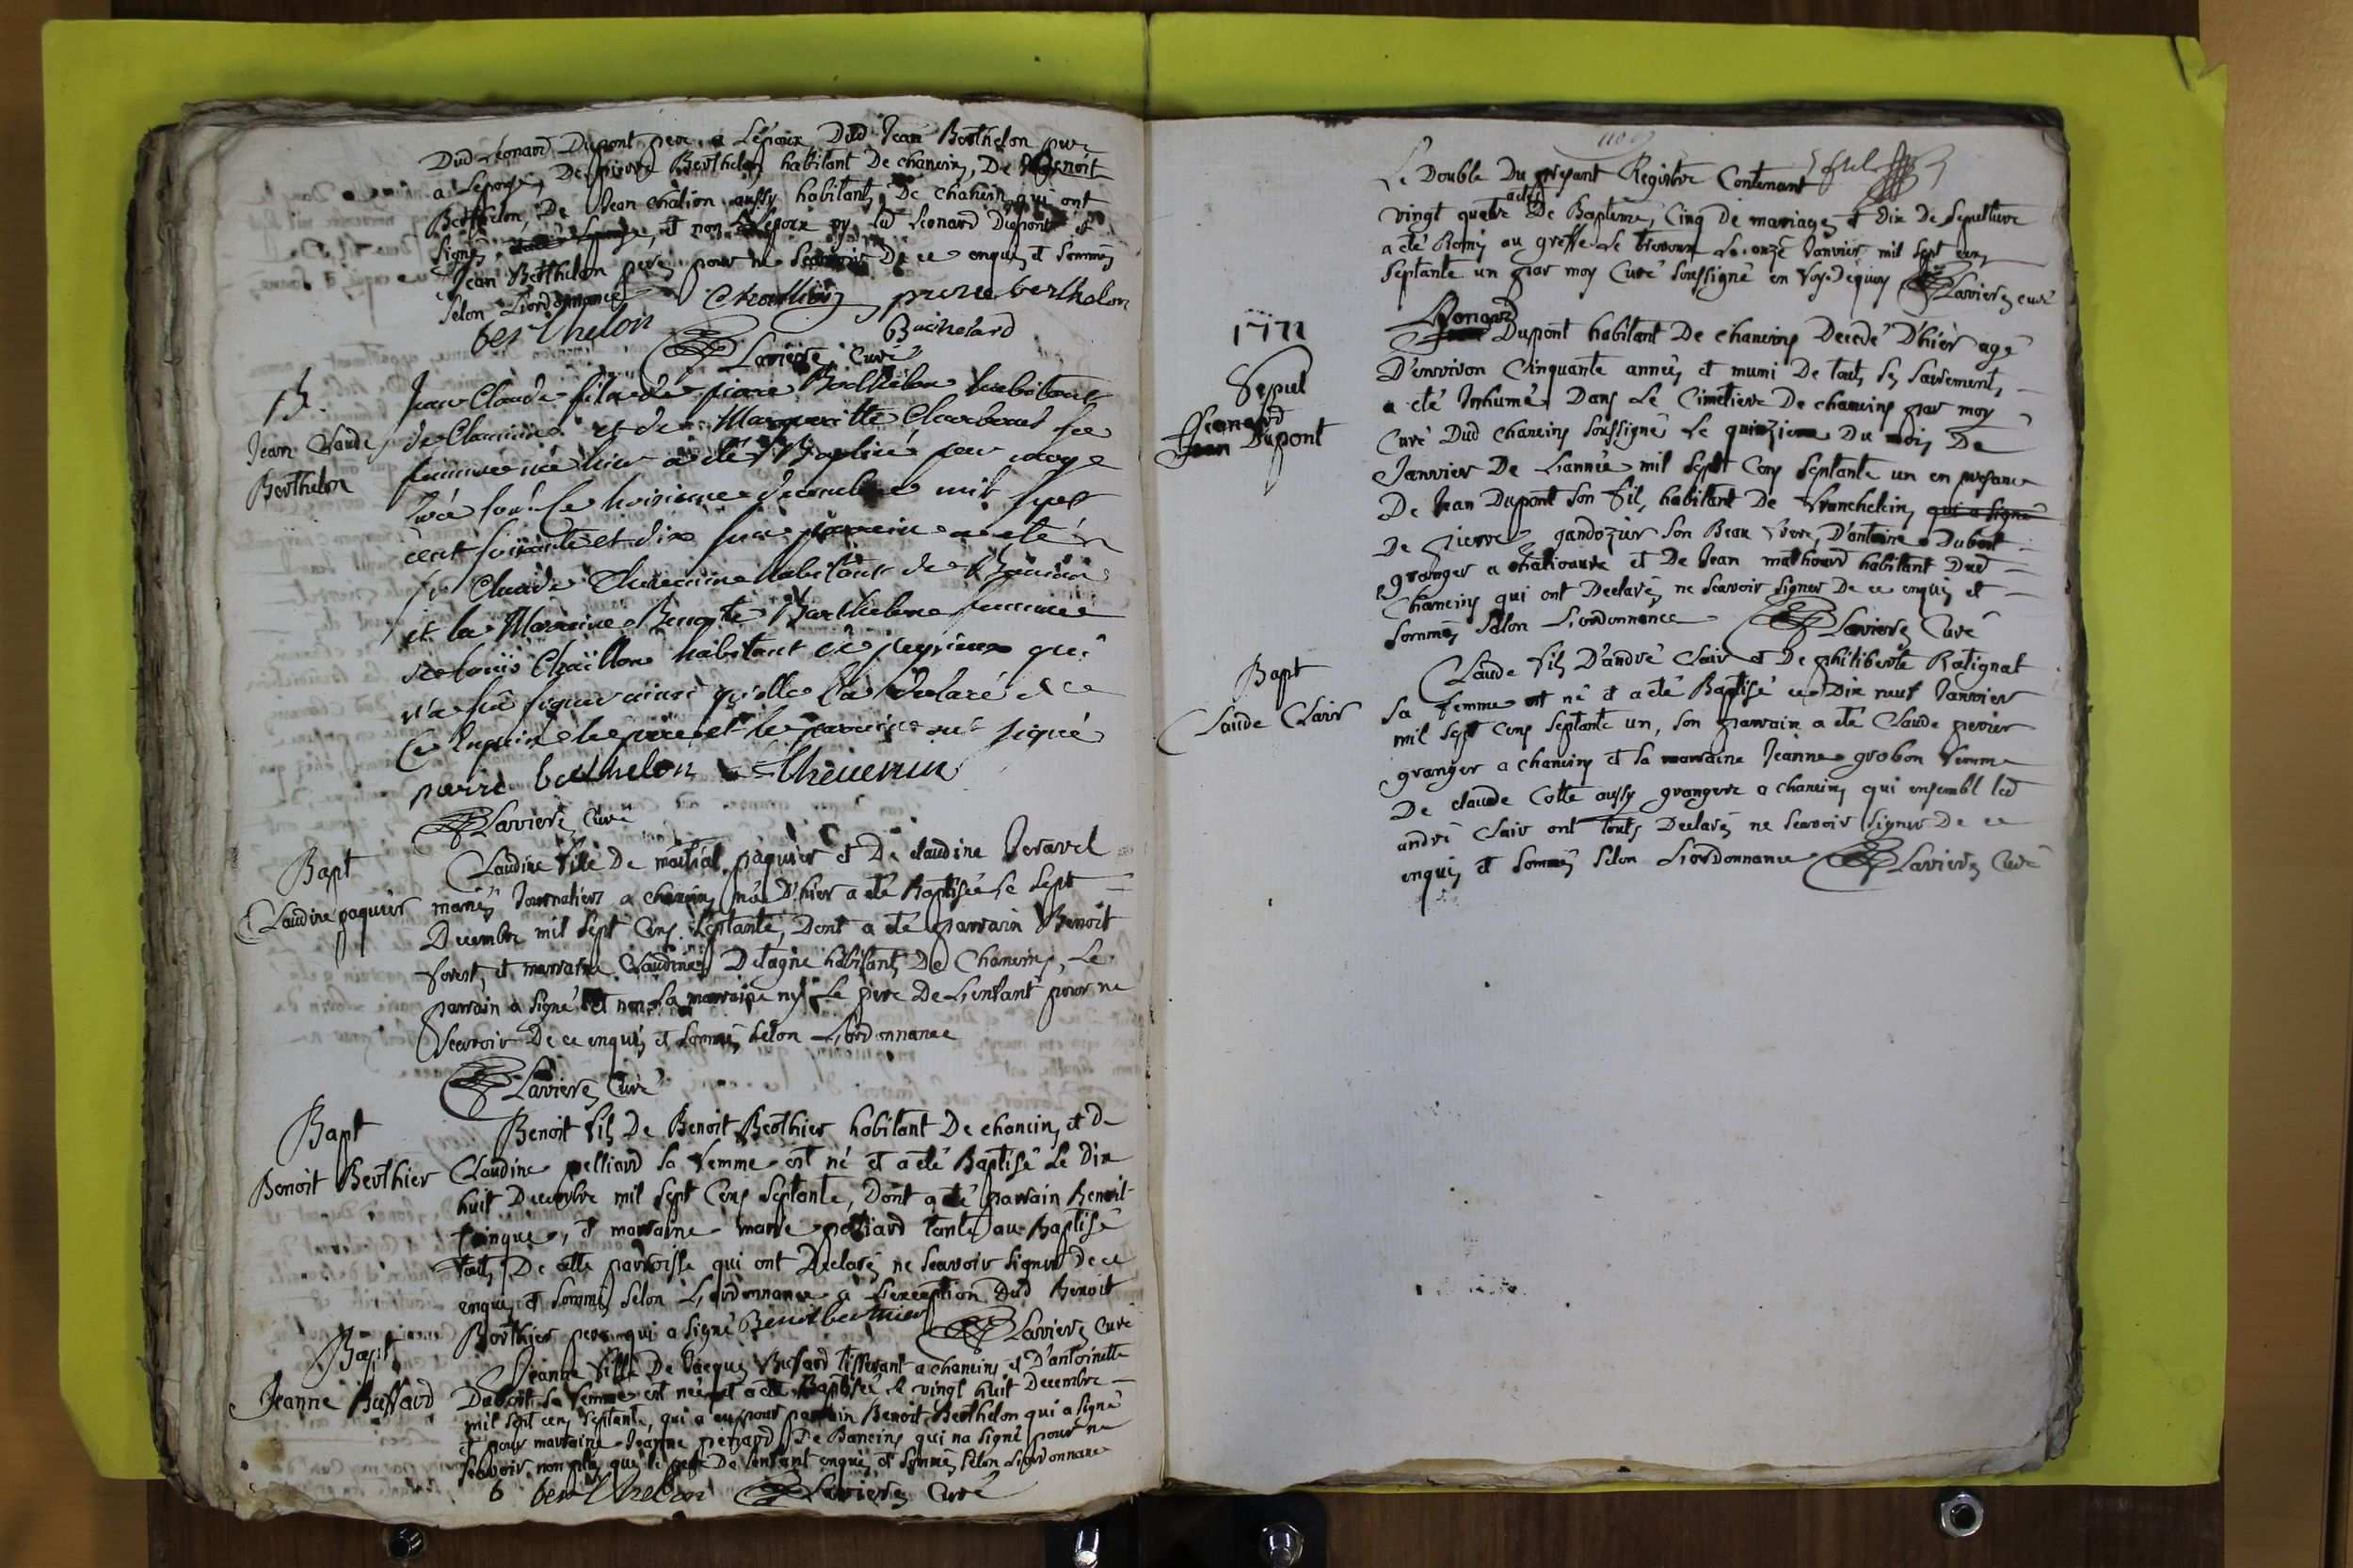 Dud Leonard Dupont pere a Lépoux Dud Jean Berthelon pere
a Lepouse, De pierre Berthelon habitant De chanein, De Benoit
Berthelon, De Jean chation aussy habitants De chanein, qui ont
signés et non Lépoux ny led Leonard Dupont et
Jean Berthelon peres pour ne Scavoir De ce enquis et Sommés
Selon L'ordonnance pierre berthelon
berthelon
Buchelard
Laviere, Curé
B.
Jean Claude
Berthelon
Jean Claude fils de pierre Berthelon habitant
de Chanins et de Margueritte Charbonet sa
femme né hier a été Baptisé par moy
curé sous. le troisieme decembre mil sept
cent soixante et dix son parrain a été
sr Claude Thevenin habitant de Bancins
et la Marraine Benoite Barthelone femme
de louis Chaillon habitant de peyrieux qui
n'a sû signer ainsi qu'elle l'a declaré de ce
enquise le pere et le parrain ont signé
pierre berthelon Thevenin
Laviere, Curé
Bapt
Claudine paquier
Claudine fille De martial paquier et De claudine Veravel
mariés Journaliers a chanein, née D'hier a été Baptisée le Sept
Decembre mil Sept Cens Septante, Dont a été parrain Benoit
forest, et marraine Claudine Detagne habitants De Chaneins, Le
parrain a Signé et non La marraine ny Le pere De L'enfant pour ne
Scavoir De ce enquis et Sommés selon L'ordonnance
Laviere, Curé
Bapt
Benoit Berthier
Benoit fils De Benoit Berthier habitant De chanein, et De
Claudine pelliard Sa femme est né et a été Baptisé Le Dix
huit Decembre mil Sept Cens Septante, Dont a été parrain Benoit
et marraine marie pelliard tante au Baptisé
touts De cette parroisse qui ont Declarés ne Scavoir signer De ce
enquis et Sommés Selon L'ordonnance a L'exception Dud Benoit
Berthier pere qui a signé Benoit berthier Laviere, Curé
Bapt
Jeanne Buffard
Jeanne fille De Jacques Buffard tisserant a chaneins et D'antoinette
Duboit Sa femme est née et a été Baptisée le vingt huit Decembre
mil Sept cens Septante, qui a eu pour parrain Benoit Berthelon qui a signé
et pour marraine Jeanne De Bancins qui na signé pour ne
Scavoir non plus que le pere De l'enfant enquis et Sommés Selon L'ordonnance
b berthelon Laviere, Curé
Le Double Du present Registre Contenant
vingt quatre actes De Baptême, Cinq De mariages et Dix De Sepulture
a été Remis au greffe De trevoux Le onze Janvier mil Sept cens
Septante un par moy Curé Soussigné en foy De quoy Laviere, curé
1771
Sepul
Leonard
Jean Dupont
Leonard
Jean Dupont habitant De chaneins Decedé D'hier agé
D'environ Cinquante années et muni De touts ses Sacrements,
a été Inhumé Dans Le Cimetiere De chaneins par moy
Curé Dud chaneins Soussigné Le quinzieme Du mois De
Janvier De L'année mil Sept Cens Septante un en presance
De Jean Dupont son fils, habitant De franchelein, qui a signé
De pierre gandozier son Beau frere, D'antoine Duboit
granger a chalioure et De Jean mathourd habitant Dud
Chaneins qui ont Declarés, ne Scavoir signer De ce enquis et
Sommés, Selon L'ordonnance Laviere, Curé
Bapt
Claude Clair
Claude fils D'andré Clair et De philiberte Ratignat
Sa femme est né et a été Baptisé ce Dix neuf Janvier
mil Sept Cens Septante un, son parrain a été Claude perier
granger a chaneins et Sa marraine Jeanne grobon femme
De claude Cotte aussy granger a chaneins, qui ensembl led
andré Clair ont touts Declarés ne Scavoir signer De ce
enquis et Sommés Selon L'ordonnance Laviere, Curé